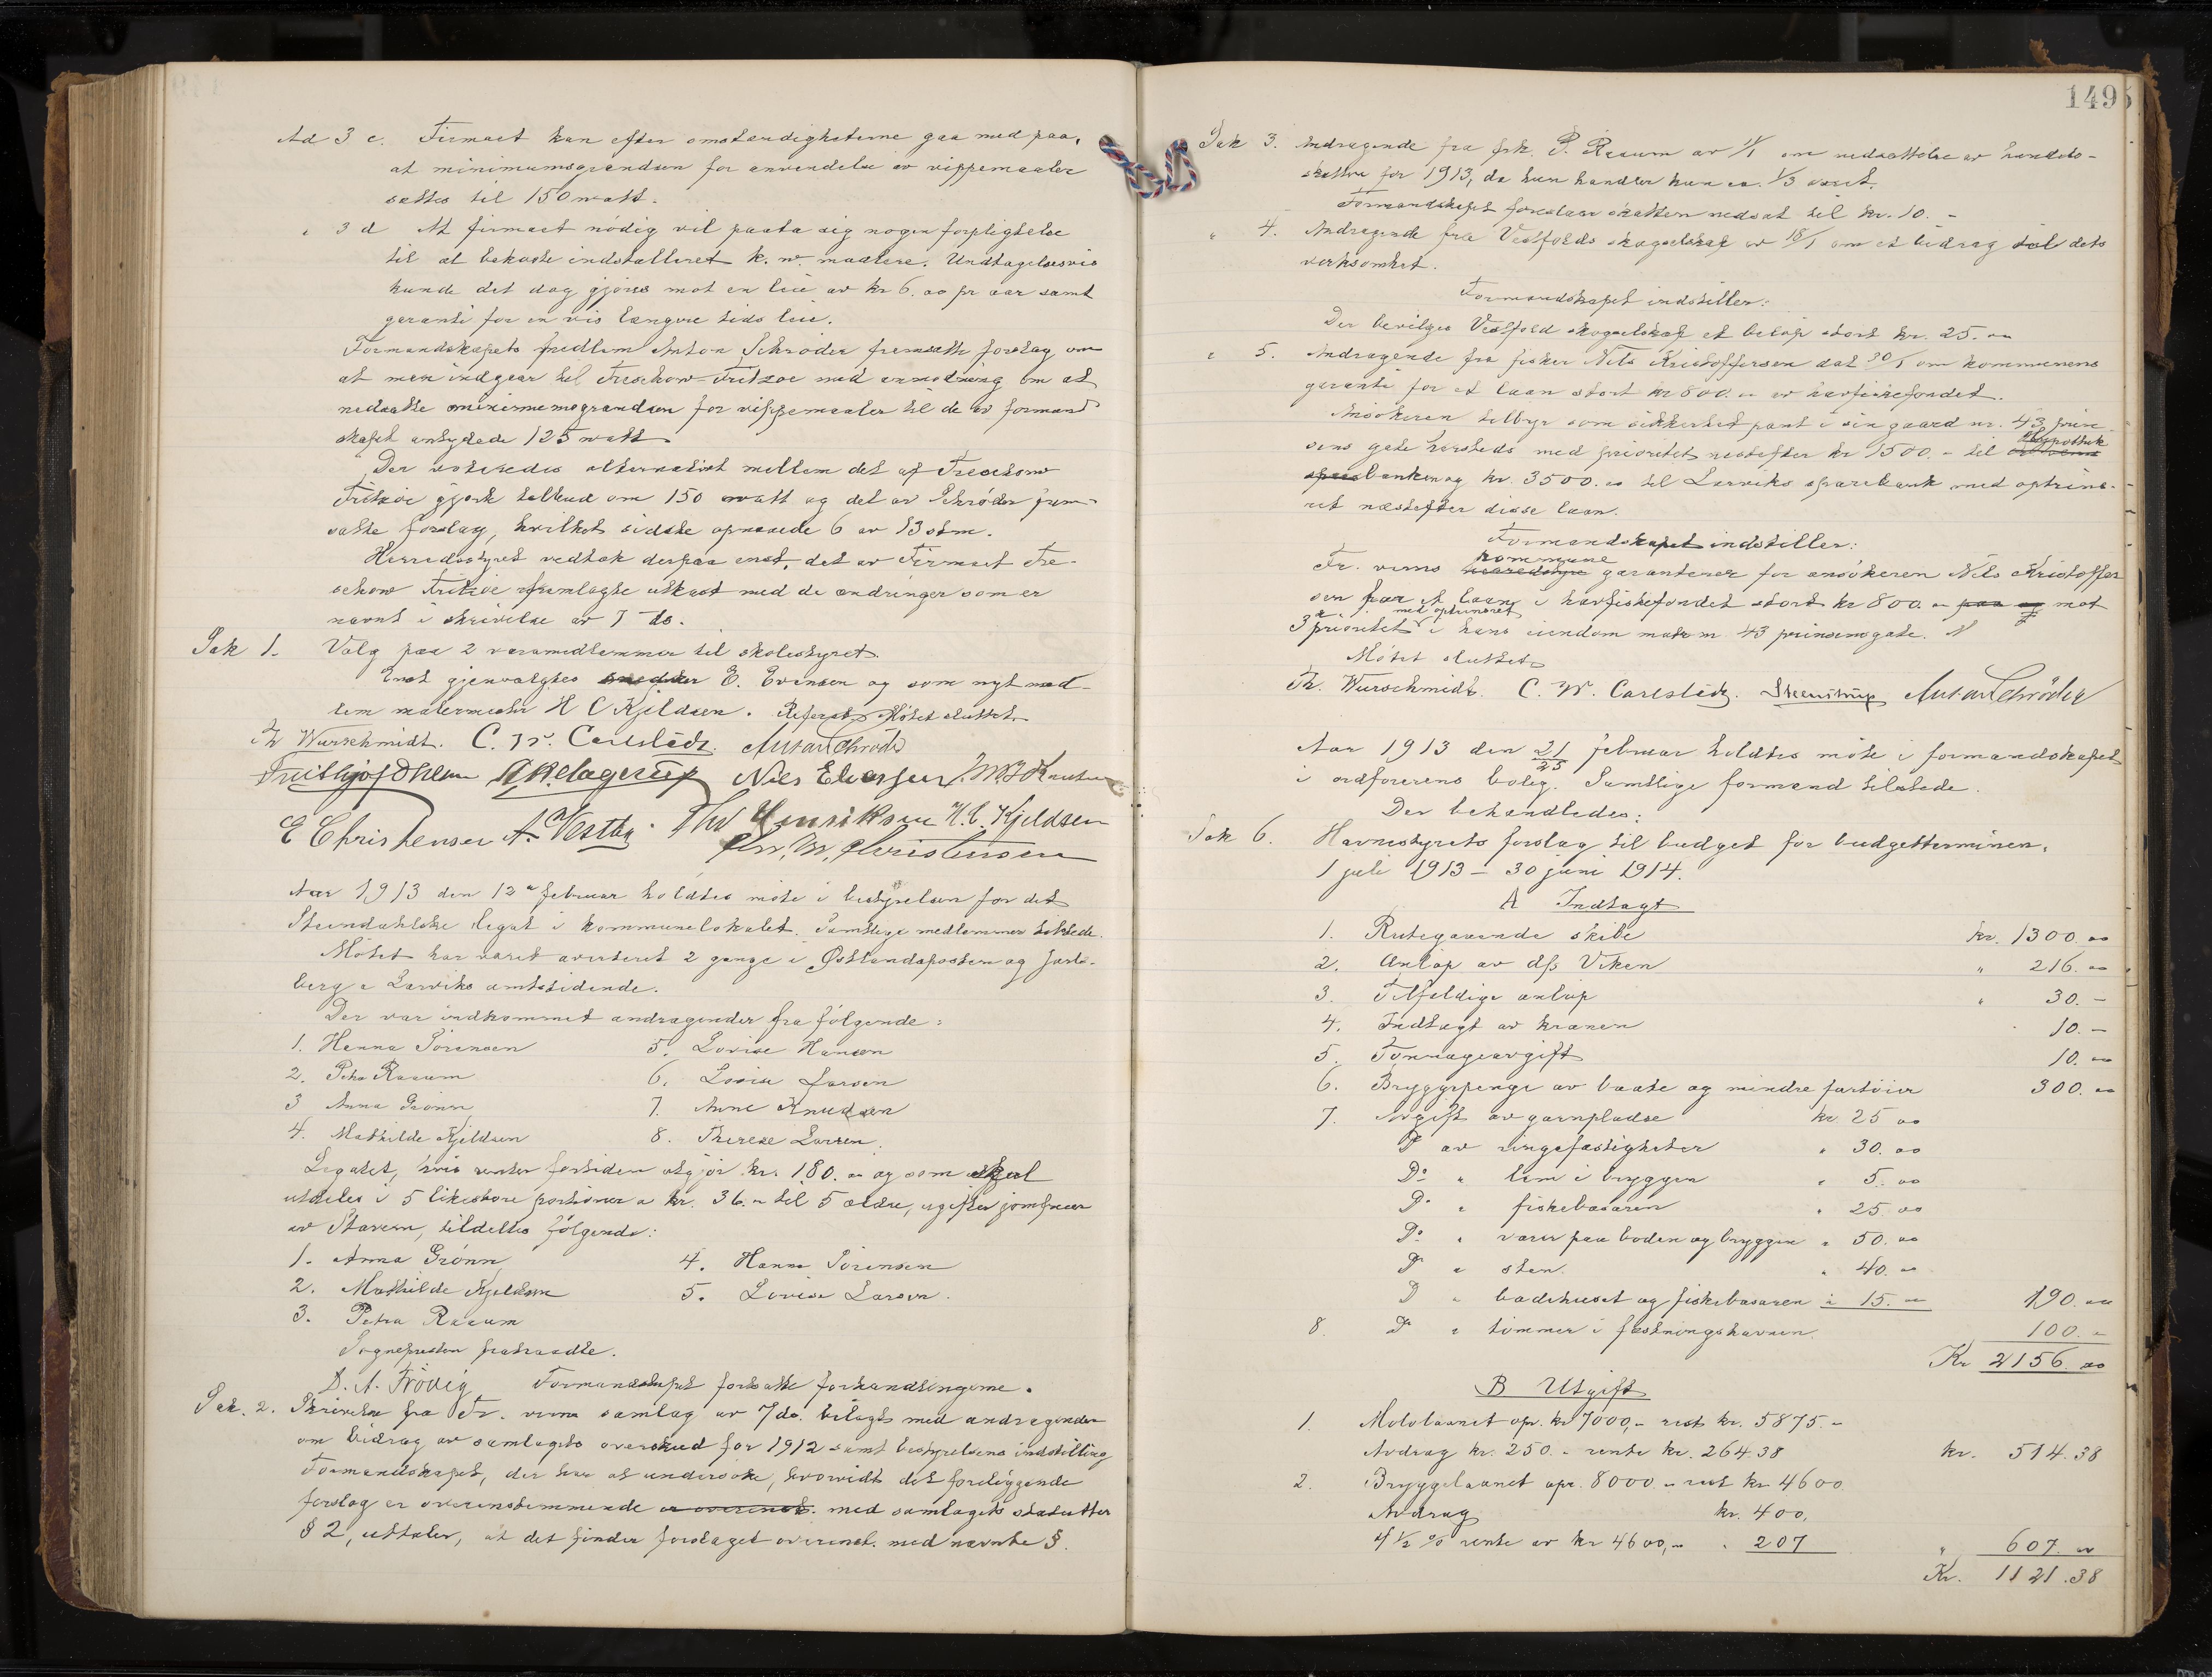 Ad 3 c. Firmaet kan efter omstændigheterne gaa med paa,
at minimumsgrændsen for anvendelse av vippemaaler
sættes til 150 watt.
" 3 d At firmaet nödig vil paata sig nogen forpligtelse
til at bekoste indstalleret k. w. maalere. Undtagelsesvis
kunde det dog gjöres mot en leie av kr 6.00 pr aar samt
garanti for en vis længere tids leie.
Formandskapets medlem Anton Schröder fremsatte forslag om
at man indgaar til Treschow-Fritzöe med anmodning om at
nedsætte minimumsgrændsen for vippemaaler til de av formand
skapet antydede 125 watt.
Der voteredes alternativt mellem det af Treschow
Fritzöe gjorte tilbud om 150 watt og det av Schröder frem-
satte forslag, hvilket sidste opnaaede 6 av 13 stm.
Herredsstyret vedtok derpaa enst. det av Firmaet Tre-
schow Fritzöe fremlagte utkast med de ændringer som er
nævnt i skrivelse av 7 ds.
Sak 1. Valg paa 2 varamedlemmer til skolestyret.
Enst gjenvalgtes E. Evensen og som nyt med-
lem malermester H C Kjeldsen. Referat. Mötet sluttet.
Th Wurschmidt. C. W. Carlstedt. Anton Schröder
Nils Eliassen
E Christensen A. Vestby. Thv Henriksen H. C. Kjeldsen
Chr. M. Christensen
Aar 1913 den 12te februar holdtes möte i bestyrelsen for det
Steendahlske legat i kommunelokalet. Samtlige medlemmer tilstede.
Mötet har været averteret 2 gange i Östlandsposten og Jarls-
berg & Larviks amtstidende.
Der var indkommet andragender fra fölgende:
1. Hanna Sörensen 5. Lovise Hansen
2. Petra Raaum 6. Lovise Larsen
3 Anna Grönn 7. Anne Knudsen
4. Mathilde Kjeldsen 8. Therese Larsen.
Legatet, hvis renter fortiden utgjör kr. 180.00 og som skal
utdeles i 5 likestore portioner a kr. 36.00 til 5 ældre, ugifte jomfruer
av Stavern, tildeltes fölgende:
1. Anna Grönn 4. Hanna Sörensen
2. Mathilde Kjeldsen 5. Lovise Larsen.
3. Petra Raaum
Sognepresten fratraadte.
D. A. Frövig Formandskapet fortsatte forhandlingerne.
Sak. 2. Skrivelse fra Fr. værns samlag av 7 ds. bilagt med andragender
om bidrag av samlagets overskud for 1912 samt bestyrelsens indstilling
Formandskapet, der har at undersöke, hvorvidt det foreliggende
forslag er overensstemmende er overenst. med samlagets statutter
§ 2, uttaler, at det finder forslaget overenst. med nævnte §.
1495
Sak 3. Andragende fra frk. P. Raaum av 11/1 om nedsættelse av handels-
skatten for 1913, da hun handler kun ca. 1/3 aaret.
Formandskapet foreslaar skatten nedsat til kr. 10. -
" 4. Andragende fra Vestfolds skogselskap av 18/1 om et bidrag til dets
verksomhet.
Formandskapet indstiller:
Der bevilges Vestfold skogselskap et belöp stort kr. 25.00
" 5. Andragende fra fisker Nils Kristoffersen dat 30/1 om kommunens
garanti for et laan stort kr 800.00 av havfiskefondet.
Ansökeren tilbyr som sikkerhet pant i sin gaard nr. 43 prin-
sens gate hersteds med prioritet næstefter kr 1500.- til hypothek
banken og kr. 3500.00 til Larviks sparebank med optrins-
ret næstefter disse laan.
Formandskapet indstiller:
kommune
Fr. værns herredstyre garanterer for ansökeren Nils Kristoffer
sen for et laan i havfiskefondet stort kr 800.00 paa og mot
med optrinsret
3 prioritet i hans eiendom matr nr 43 prinsensgate.
Mötet sluttet.
Th. Wurschmidt. C. W. Carlstedt. Steenstrup Anton Schröder
Aar 1913 den 21/25 februar holdtes möte i formandskapet
i ordförerens bolig. Samtlige formænd tilstede.
Der behandledes:
Sak 6. Havnestyrets forslag til budget for budgetterminen,
1 juli 1913 – 30 juni 1914.
A Indtægt
1. Rutegaaende skibe kr. 1300.00
2. Anlöp av d/s Viken " 216.00
3. Tilfeldige anlöp " 30.-
4. Indtægt av kranen 10.-
5. Tonnageavgift 10.00
6. Bryggepenge av baate og mindre fartöier 300.00
7. Avgift av garnpladse kr 25 00
Do av ringefæstigheter " 30.00
Do " lem i bryggen " 5.00
Do " fiskebasaren " 25 00
Do " varer paa boden og bryggen " 50.00
Do " sten " 40.00
Do " badehuset og fiskebasaren " 15.00 190.00
8. Do " tömmer i fæstningshavnen. 100.00
Kr 2156.00
B Utgift
1. Mololaanet opr. kr 7000,- rest kr. 5875 -
Avdrag kr. 250.- rente kr. 264.38 kr. 514.38
2. Bryggelaanet opr. 8000.- rest kr 4600
Avdrag kr. 400,
4 1/2 % rente av kr 4600,- " 207 " 607.00
Kr. 1121.38